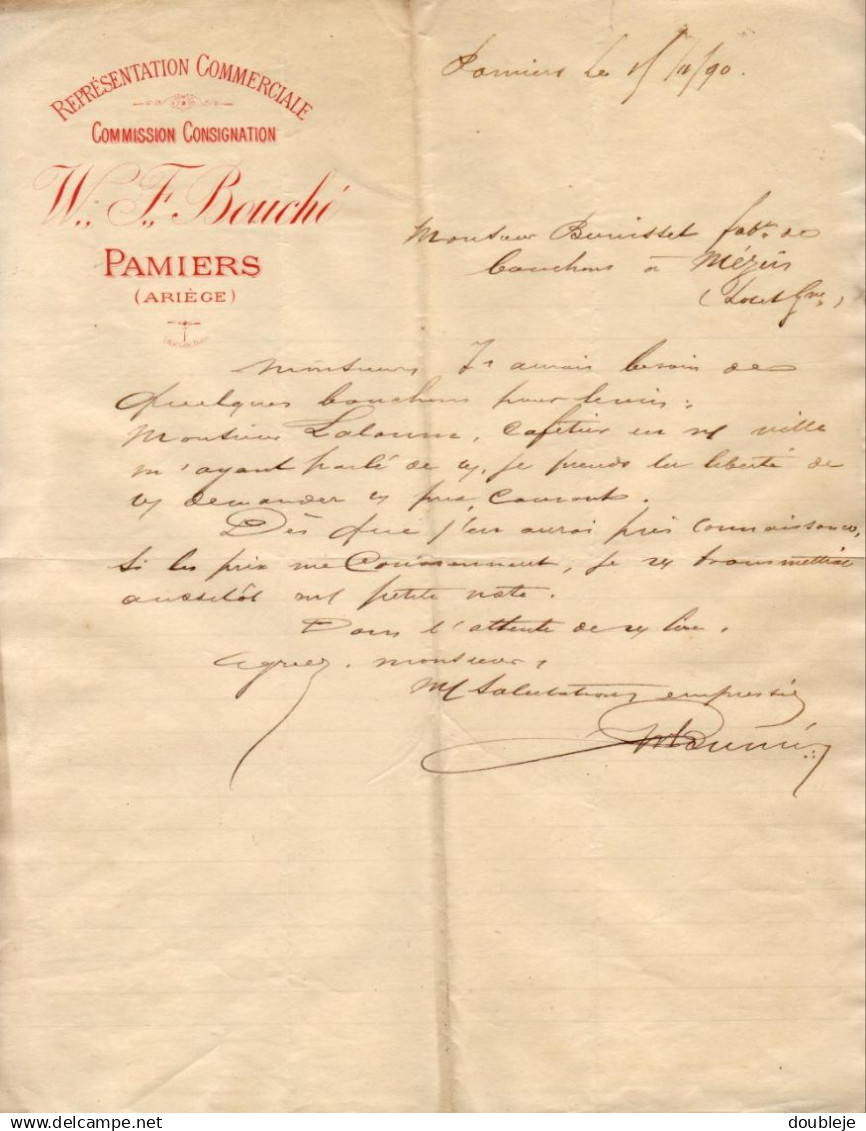 REPRÉSENTATION COMMERCIALE
COMMISSION CONSIGNATION
W. F. Bouché
PAMIERS
(ARIÈGE)
Pamiers le 15/11/90.
Monsieur Bunisset fabt. de
bouchons à Mézin
(Lot et Gne)
Monsieur, Jr aurais besoin de
quelques bouchons pour
Monsieur Lalanne, cafetier en n/ ville
m'ayant parlé de v/, je prends la liberté de
v/ demander v/ prix courant.
Dès que j'en aurai pris connaissance,
si les prix me conviennent, je v/ transmettrai
aussitôt une petite note.
Dans l'attente de v/ lire.
Agréez, monsieur,
m/ salutations empressées
doubleje